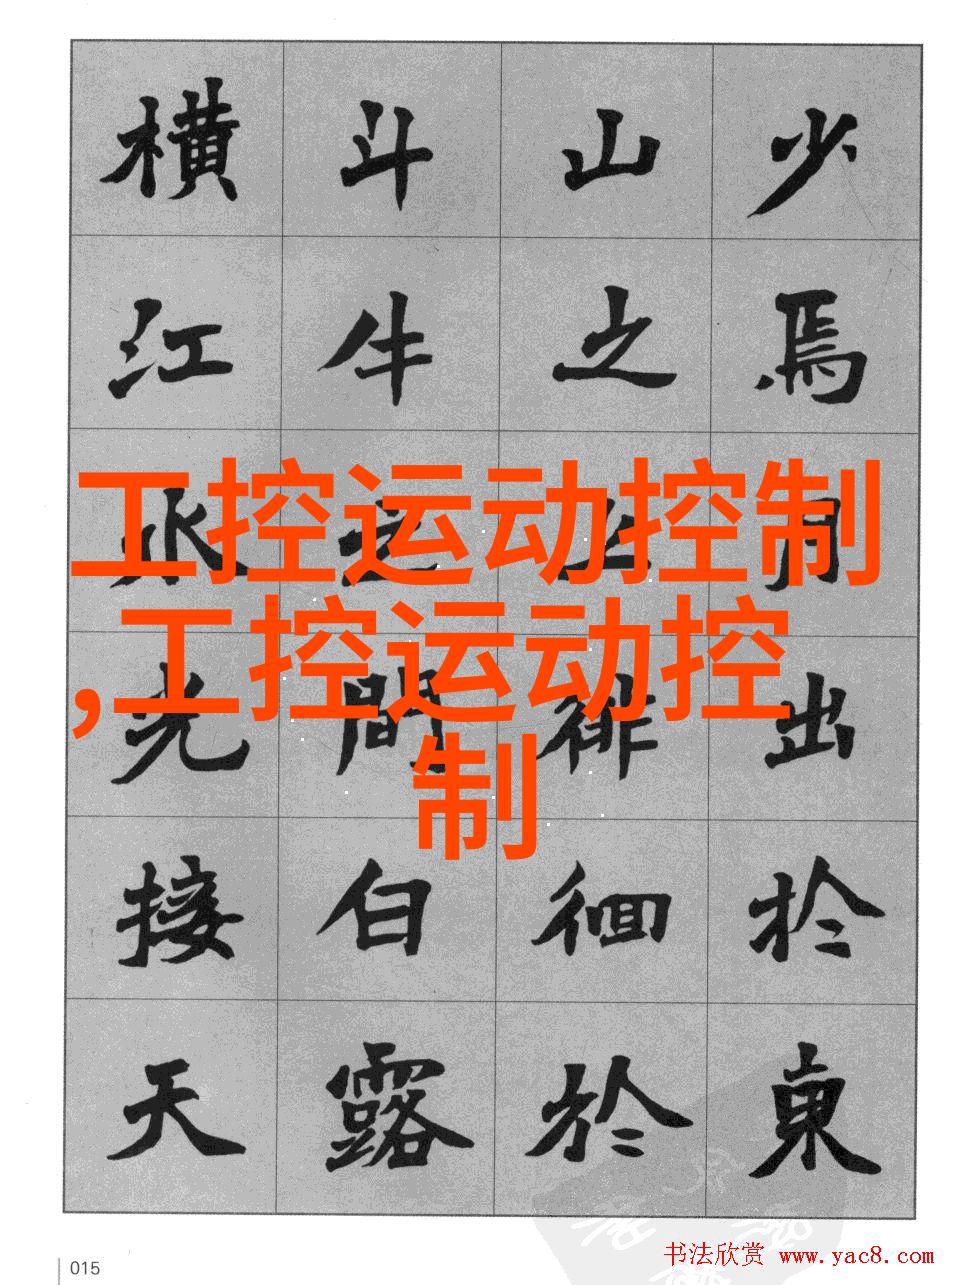 少焉月出於東
山之上徘徊於
斗牛之間白露
橫江水光接天
工控运动控制
,工控运动控
制
015
书法欣赏 www.yac8.com